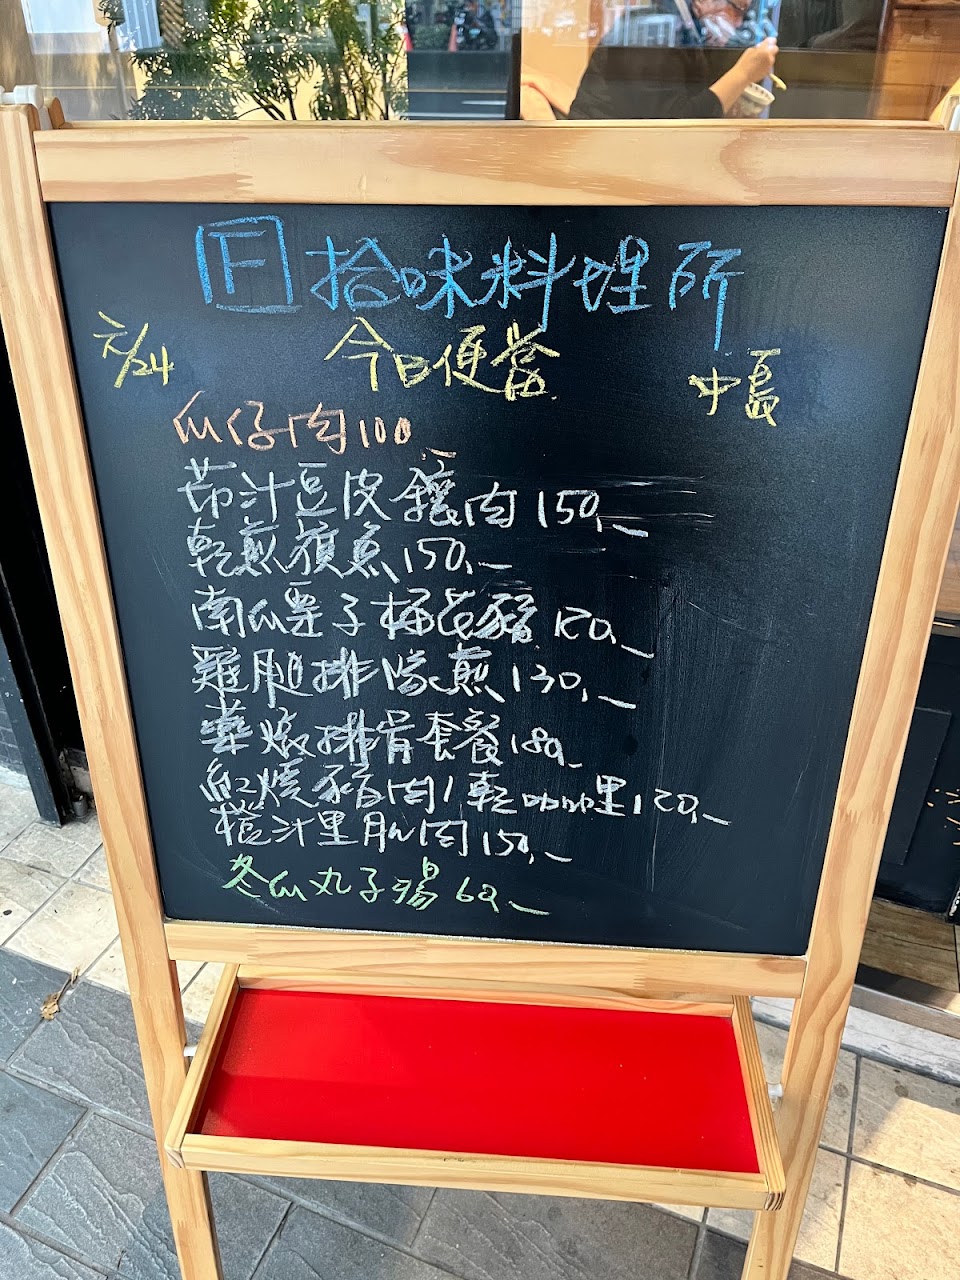 F 拾味料理所
六/24 今日便當 中晨
瓜仔肉100
茄汁豆皮鑲肉150.-
乾煎旗魚150.-
南瓜栗子梅花豬120.-
雞腿排 煎130.-
藥燉排骨套餐180.-
紅燒豬肉/乾咖哩120.-
橙汁里肌肉150.-
冬瓜丸子湯60.-